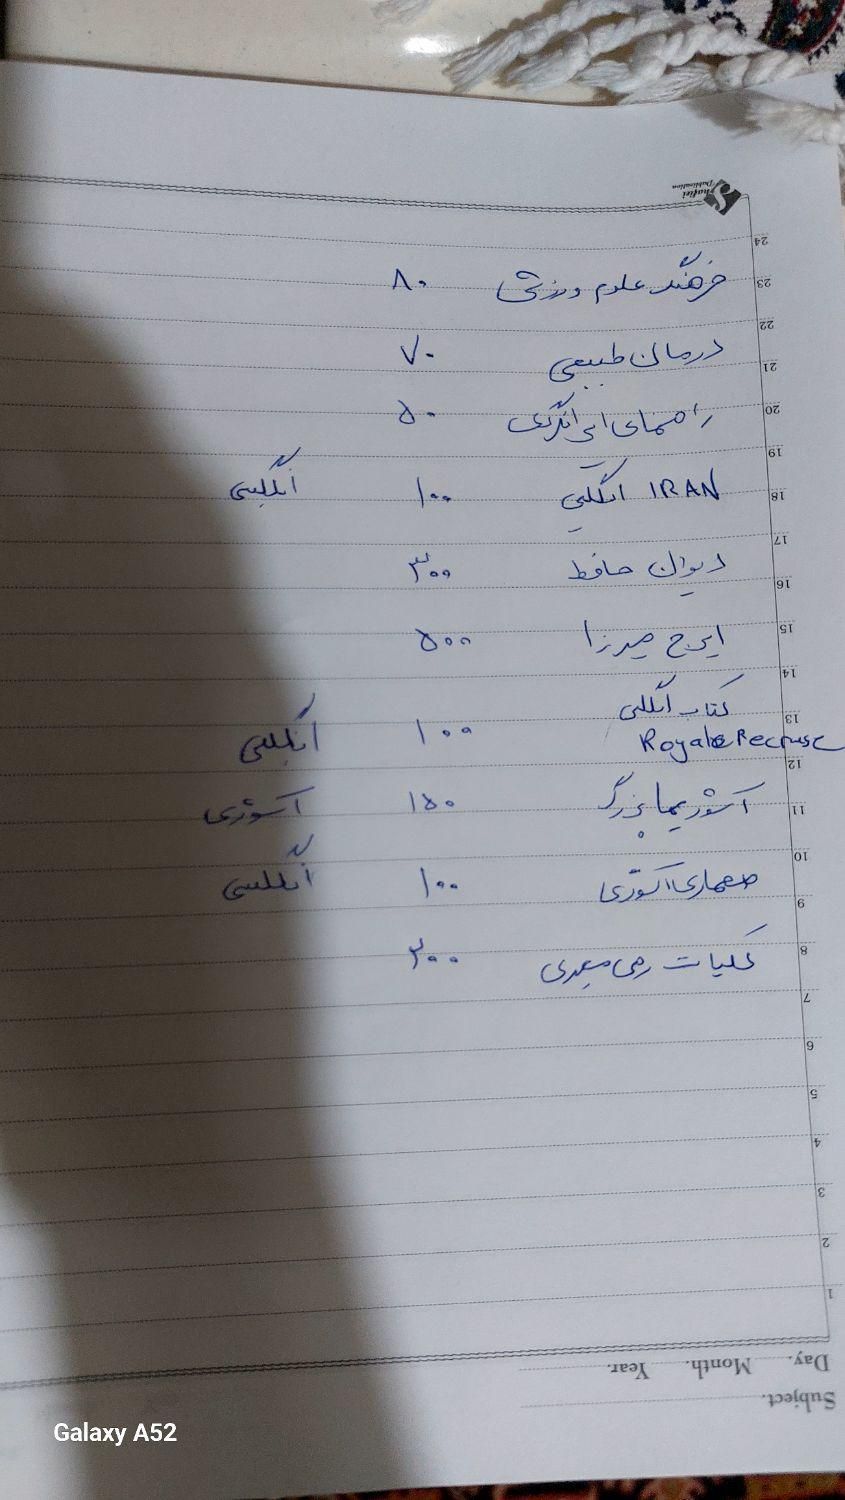 Shafiei
Publication
24
23 فرهنگ علوم ورزشی ۸۰
22
21 درمان طبیعی ۷۰
20 راهنمای ایرانگردی ۵۰
19
18 IRAN انگلیسی ۱۰۰ انگلیسی
17
16 دیوان حافظ ۳۰۰
15 ایرج میرزا ۵۰۰
14
13 کتاب انگلیسی
Royal ۱۰۰ انگلیسی
12
11 بزرگ ۱۵۰ آشوری
10
9 معماری آشوری ۱۰۰ انگلیسی
8 کلیات رهی معیری ۲۰۰
7
6
5
4
3
2
1
Day. Month. Year.
Subject.
Galaxy A52